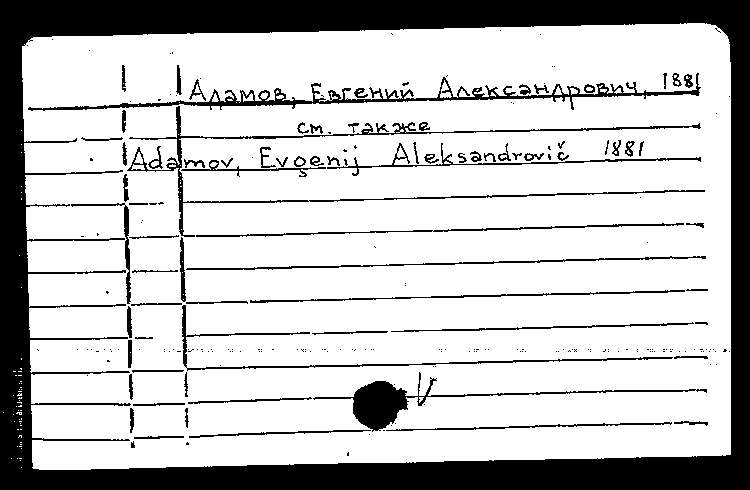 Адамов, Евгений Александрович, 1881
см. также
Adamov, Evgenij Aleksandrovič 1881
V